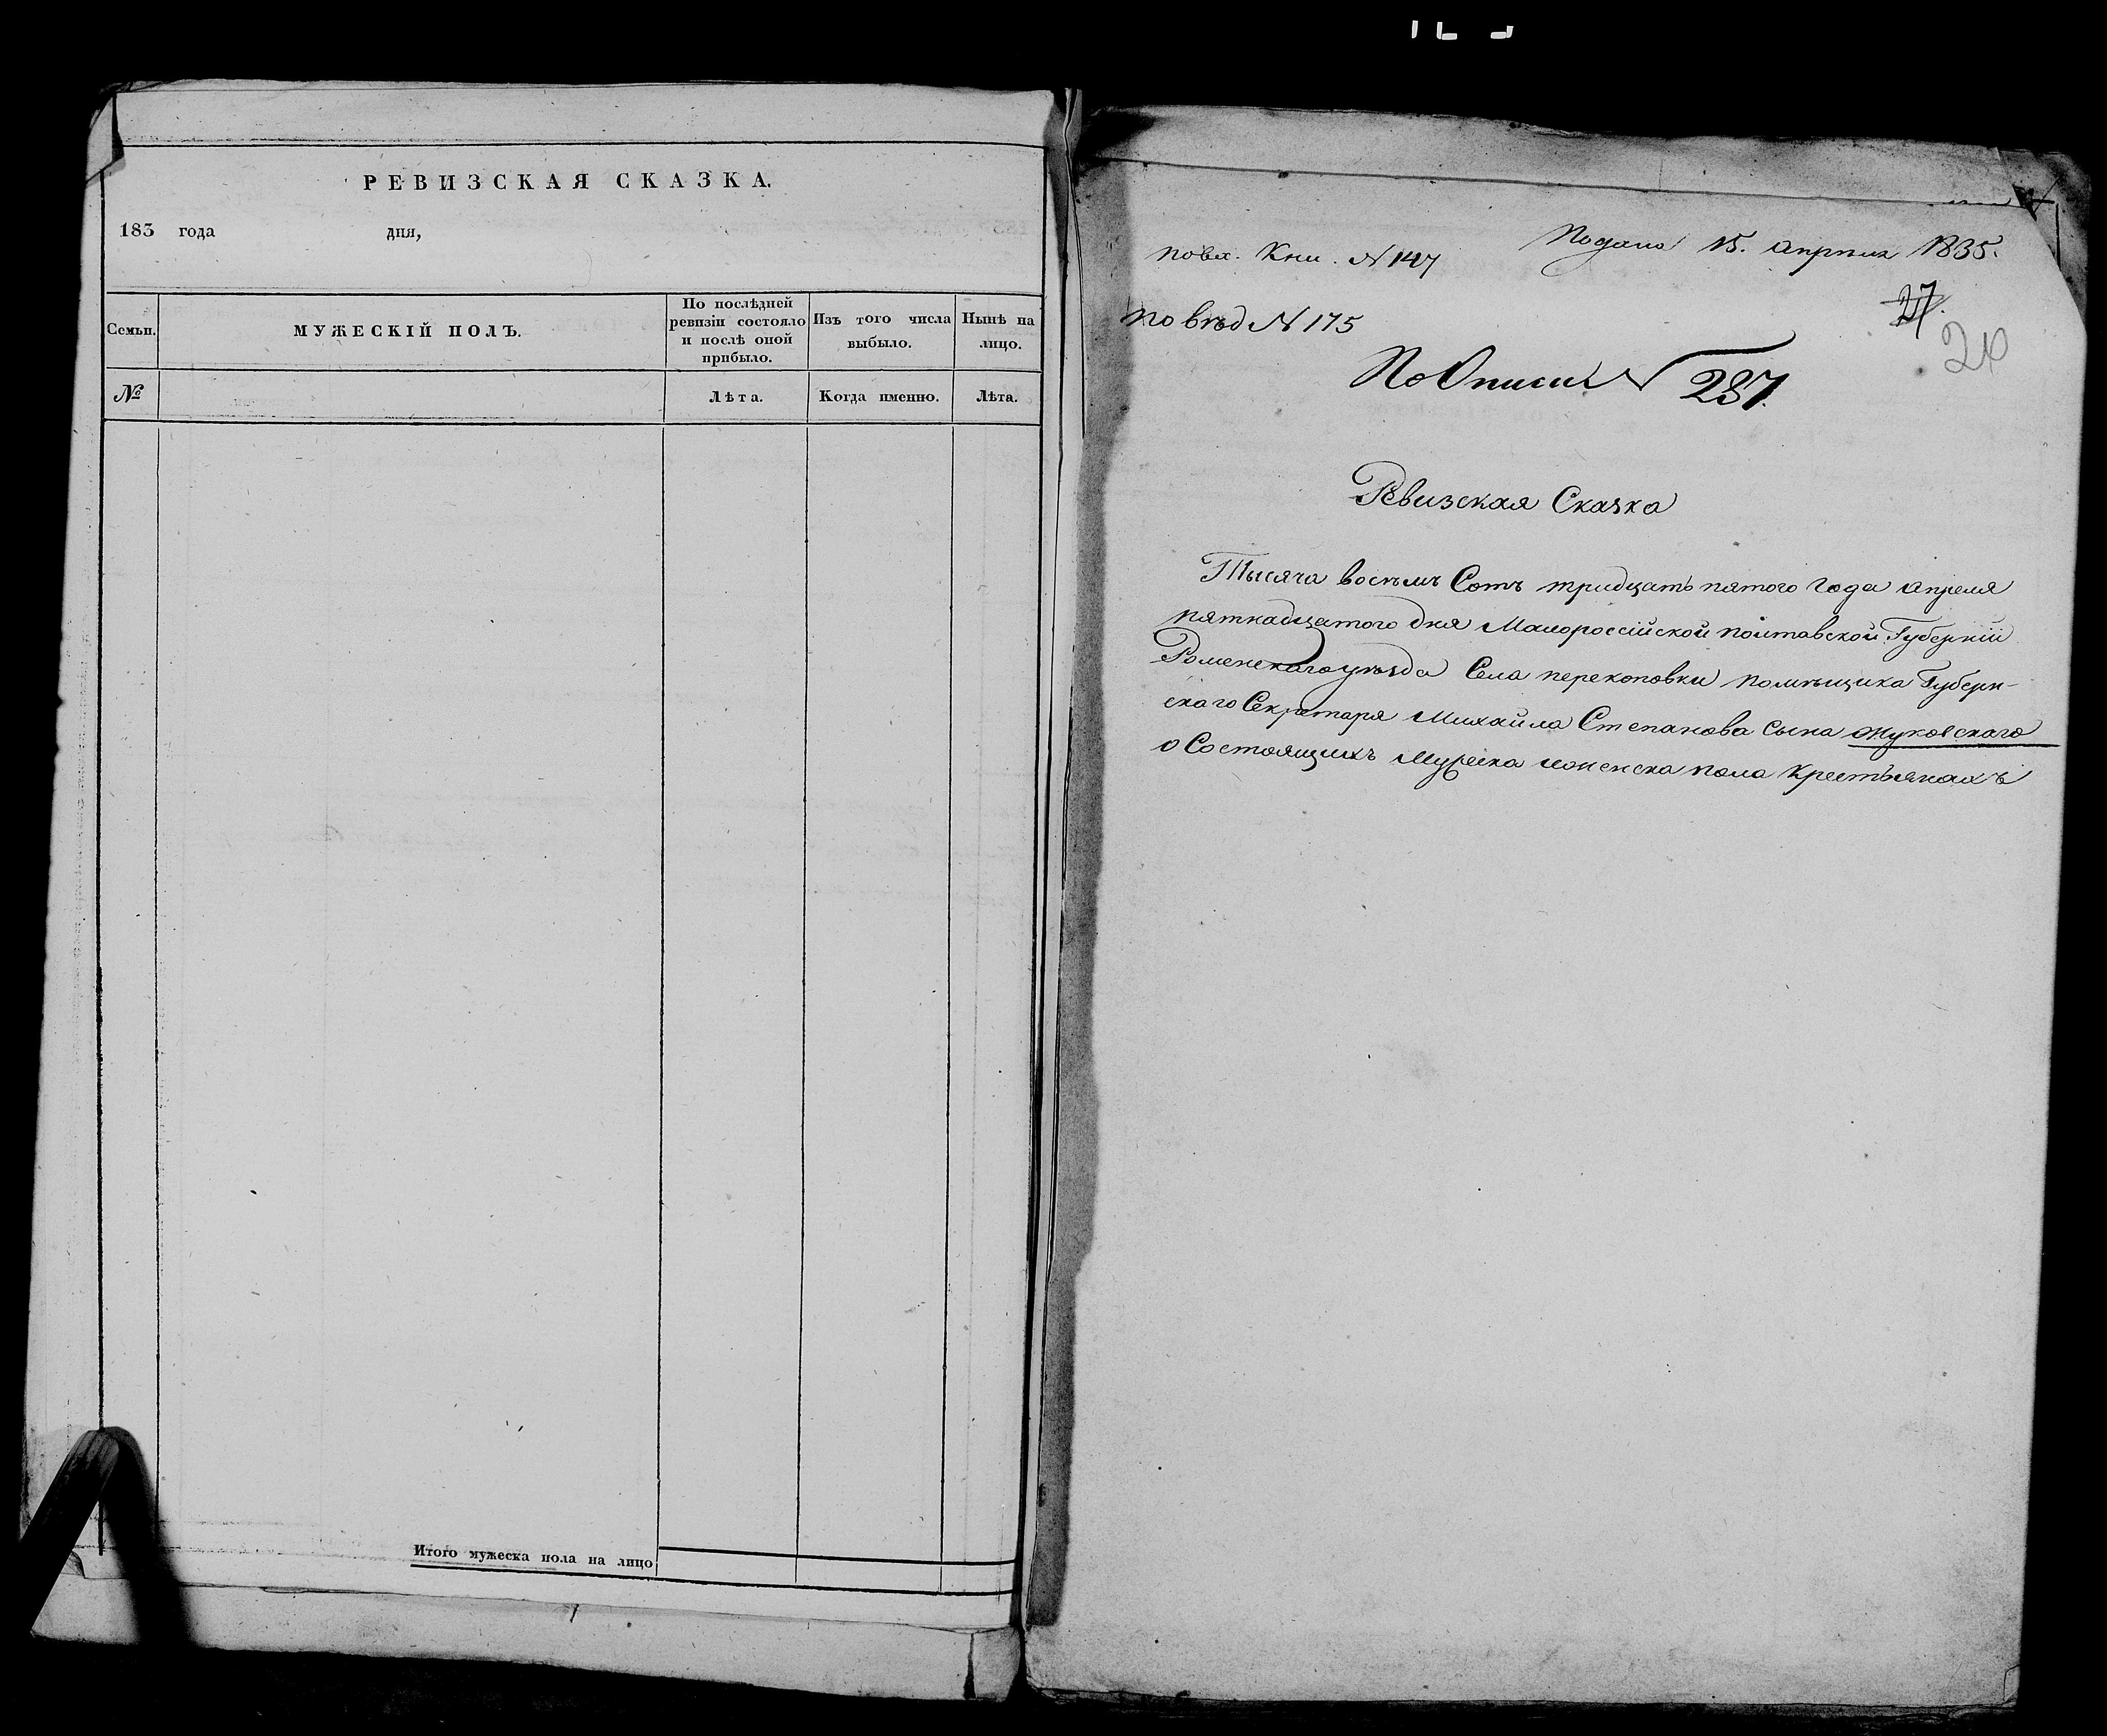 РЕВИЗСКАЯ СКАЗКА.
183 года дня,
Семьи.
МУЖЕСКІЙ ПОЛЪ.
По послѣдней
ревизіи состояло
и послѣ оной
прибыло.
Изъ того числа
выбыло.
Нынѣ на
лицо.
№
Лѣта.
Когда именно.
Лѣта.
Итого мужеска пола на лицо
Подана 15. апрѣля 1835.
по вх. Кни. N 147
27.
по вѣд N 175
По Описи N 237.
Ревизская Сказка
Тысяча восѣмъ Сотъ тридцать пятого года апреля
пятнадцатого дня Малороссійской полтавской Губерніи
Роменскаго уѣзда Села перекоповки помѣщика Губерн-
скаго Секретаря Михайла Степанова сына Жуковскаго
о Состоящихъ Мужеска и женска пола крестьянахъ